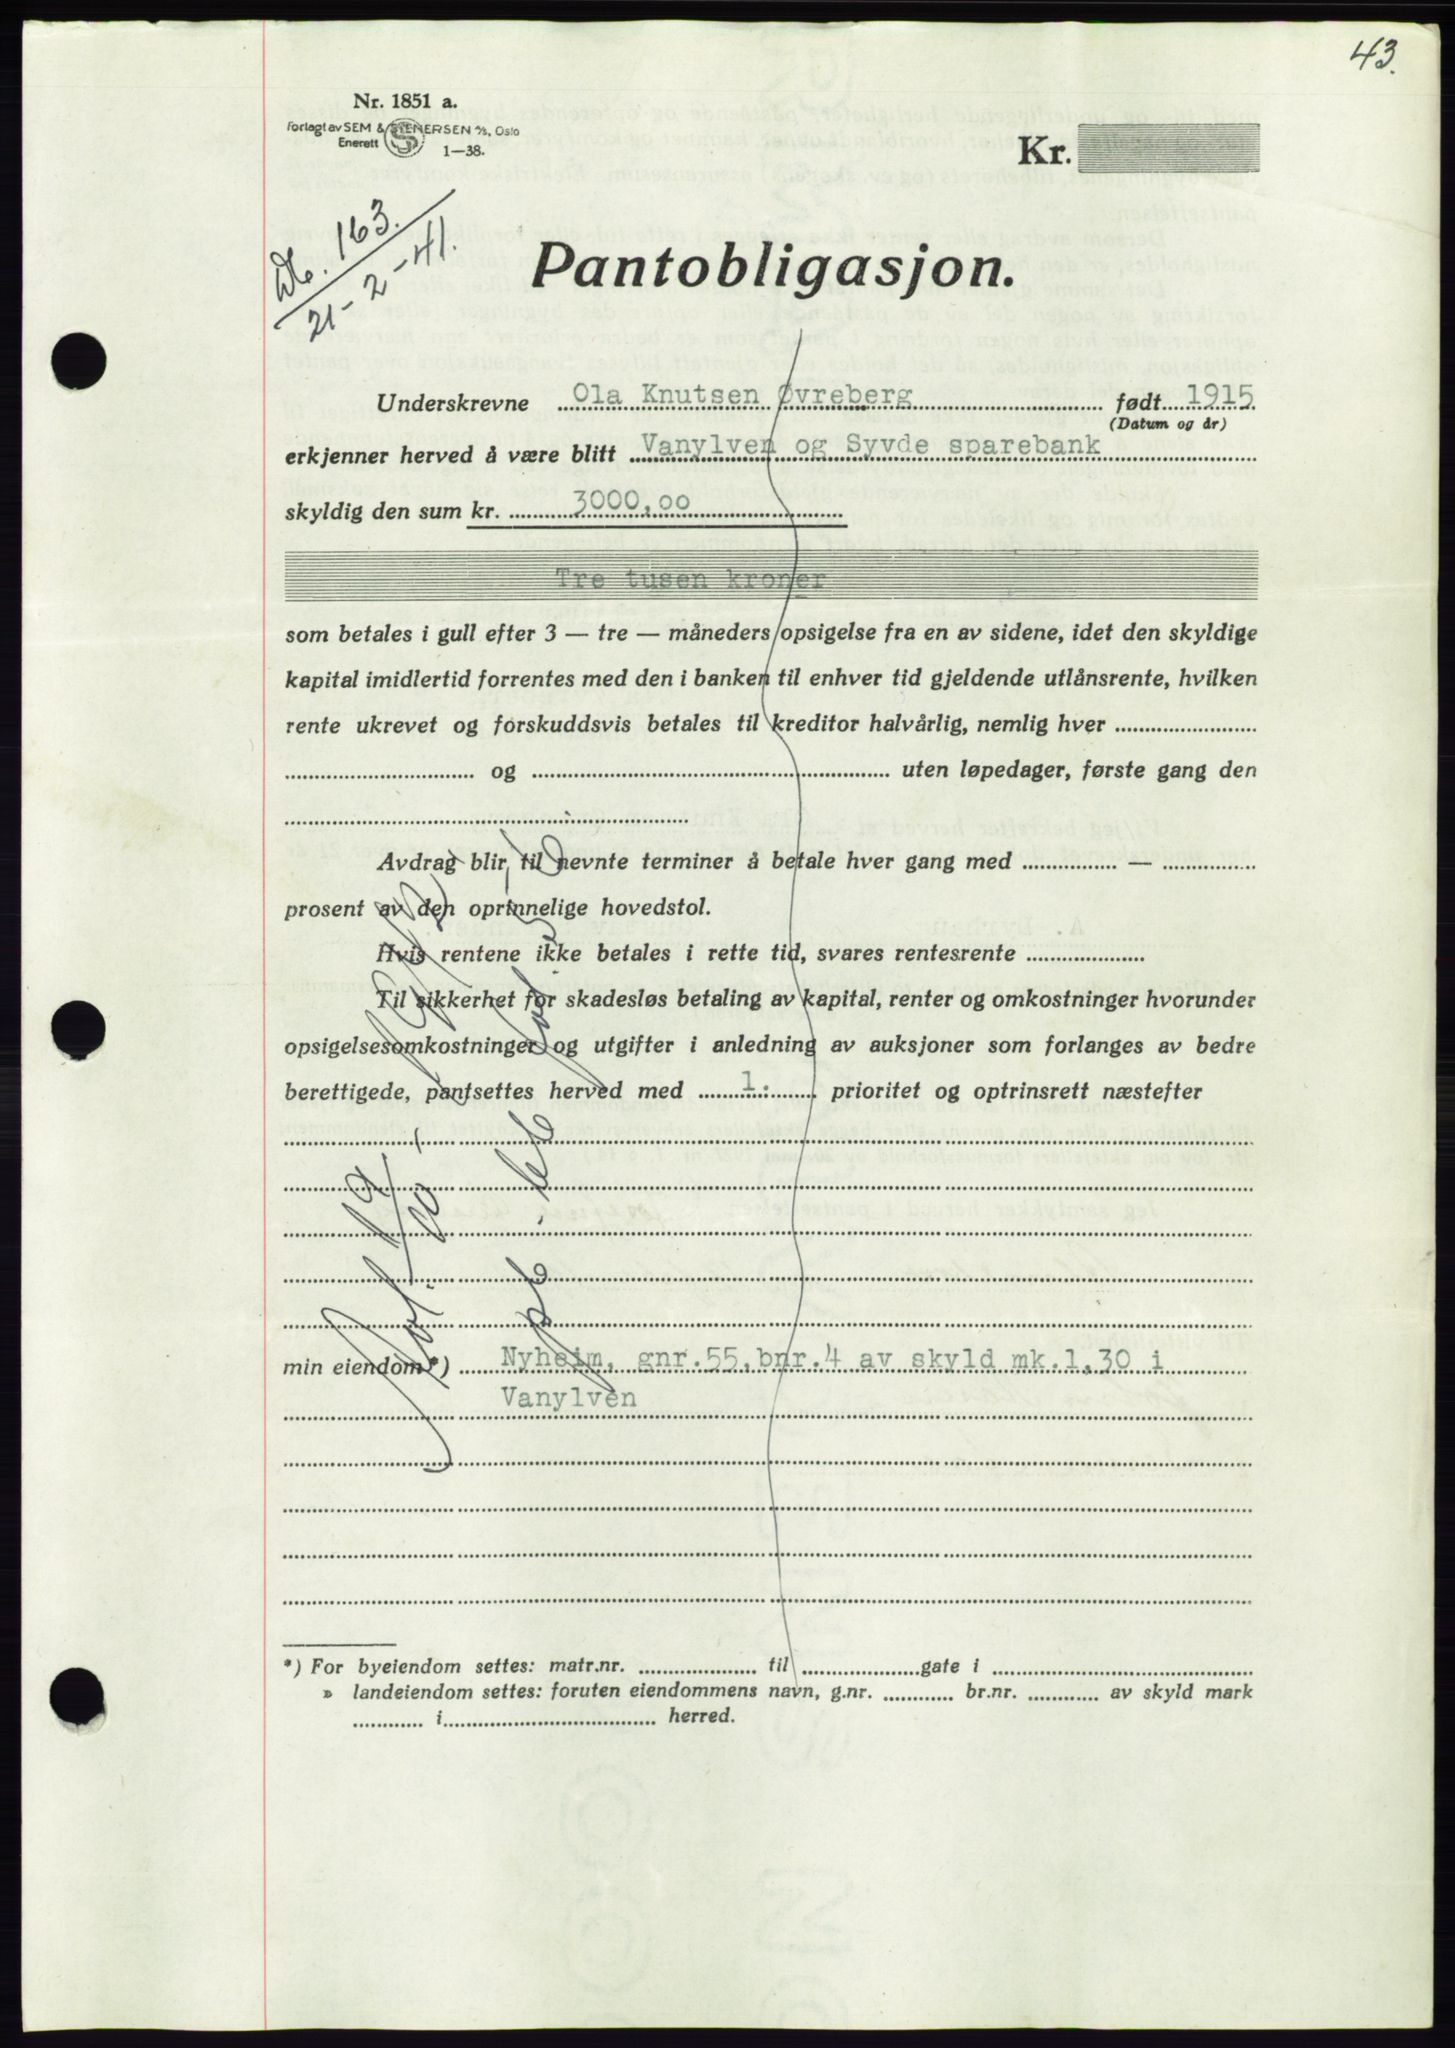 43.
Nr. 1851 a.
Forlagt av SEM & STENERSEN A/S, Oslo
Enerett
1—38.
Kr.
163.
21-2-41.
Pantobligasjon.
Underskrevne Ola Knutsen Øvreberg født 1915
(Datum og år)
erkjenner herved å være blitt Vanylven og Syvde sparebank
skyldig den sum kr. 3000,oo
Tre tusen kroner
som betales i gull efter 3 — tre — måneders opsigelse fra en av sidene, idet den skyldige
kapital imidlertid forrentes med den i banken til enhver tid gjeldende utlånsrente, hvilken
rente ukrevet og forskuddsvis betales til kreditor halvårlig, nemlig hver
og uten løpedager, første gang den
Avdrag blir til nevnte terminer å betale hver gang med —
prosent av den oprinnelige hovedstol.
Hvis rentene ikke betales i rette tid, svares rentesrente
Til sikkerhet for skadesløs betaling av kapital, renter og omkostninger hvorunder
opsigelsesomkostninger og utgifter i anledning av auksjoner som forlanges av bedre
berettigede, pantsettes herved med 1. prioritet og optrinsrett næstefter
min eiendom*) Nyheim, gnr.55,bnr.4 av skyld mk.1,30 i
Vanylven
*) For byeiendom settes: matr.nr. til gate i
» landeiendom settes: foruten eiendommens navn, g.nr. br.nr. av skyld mark
i herred.